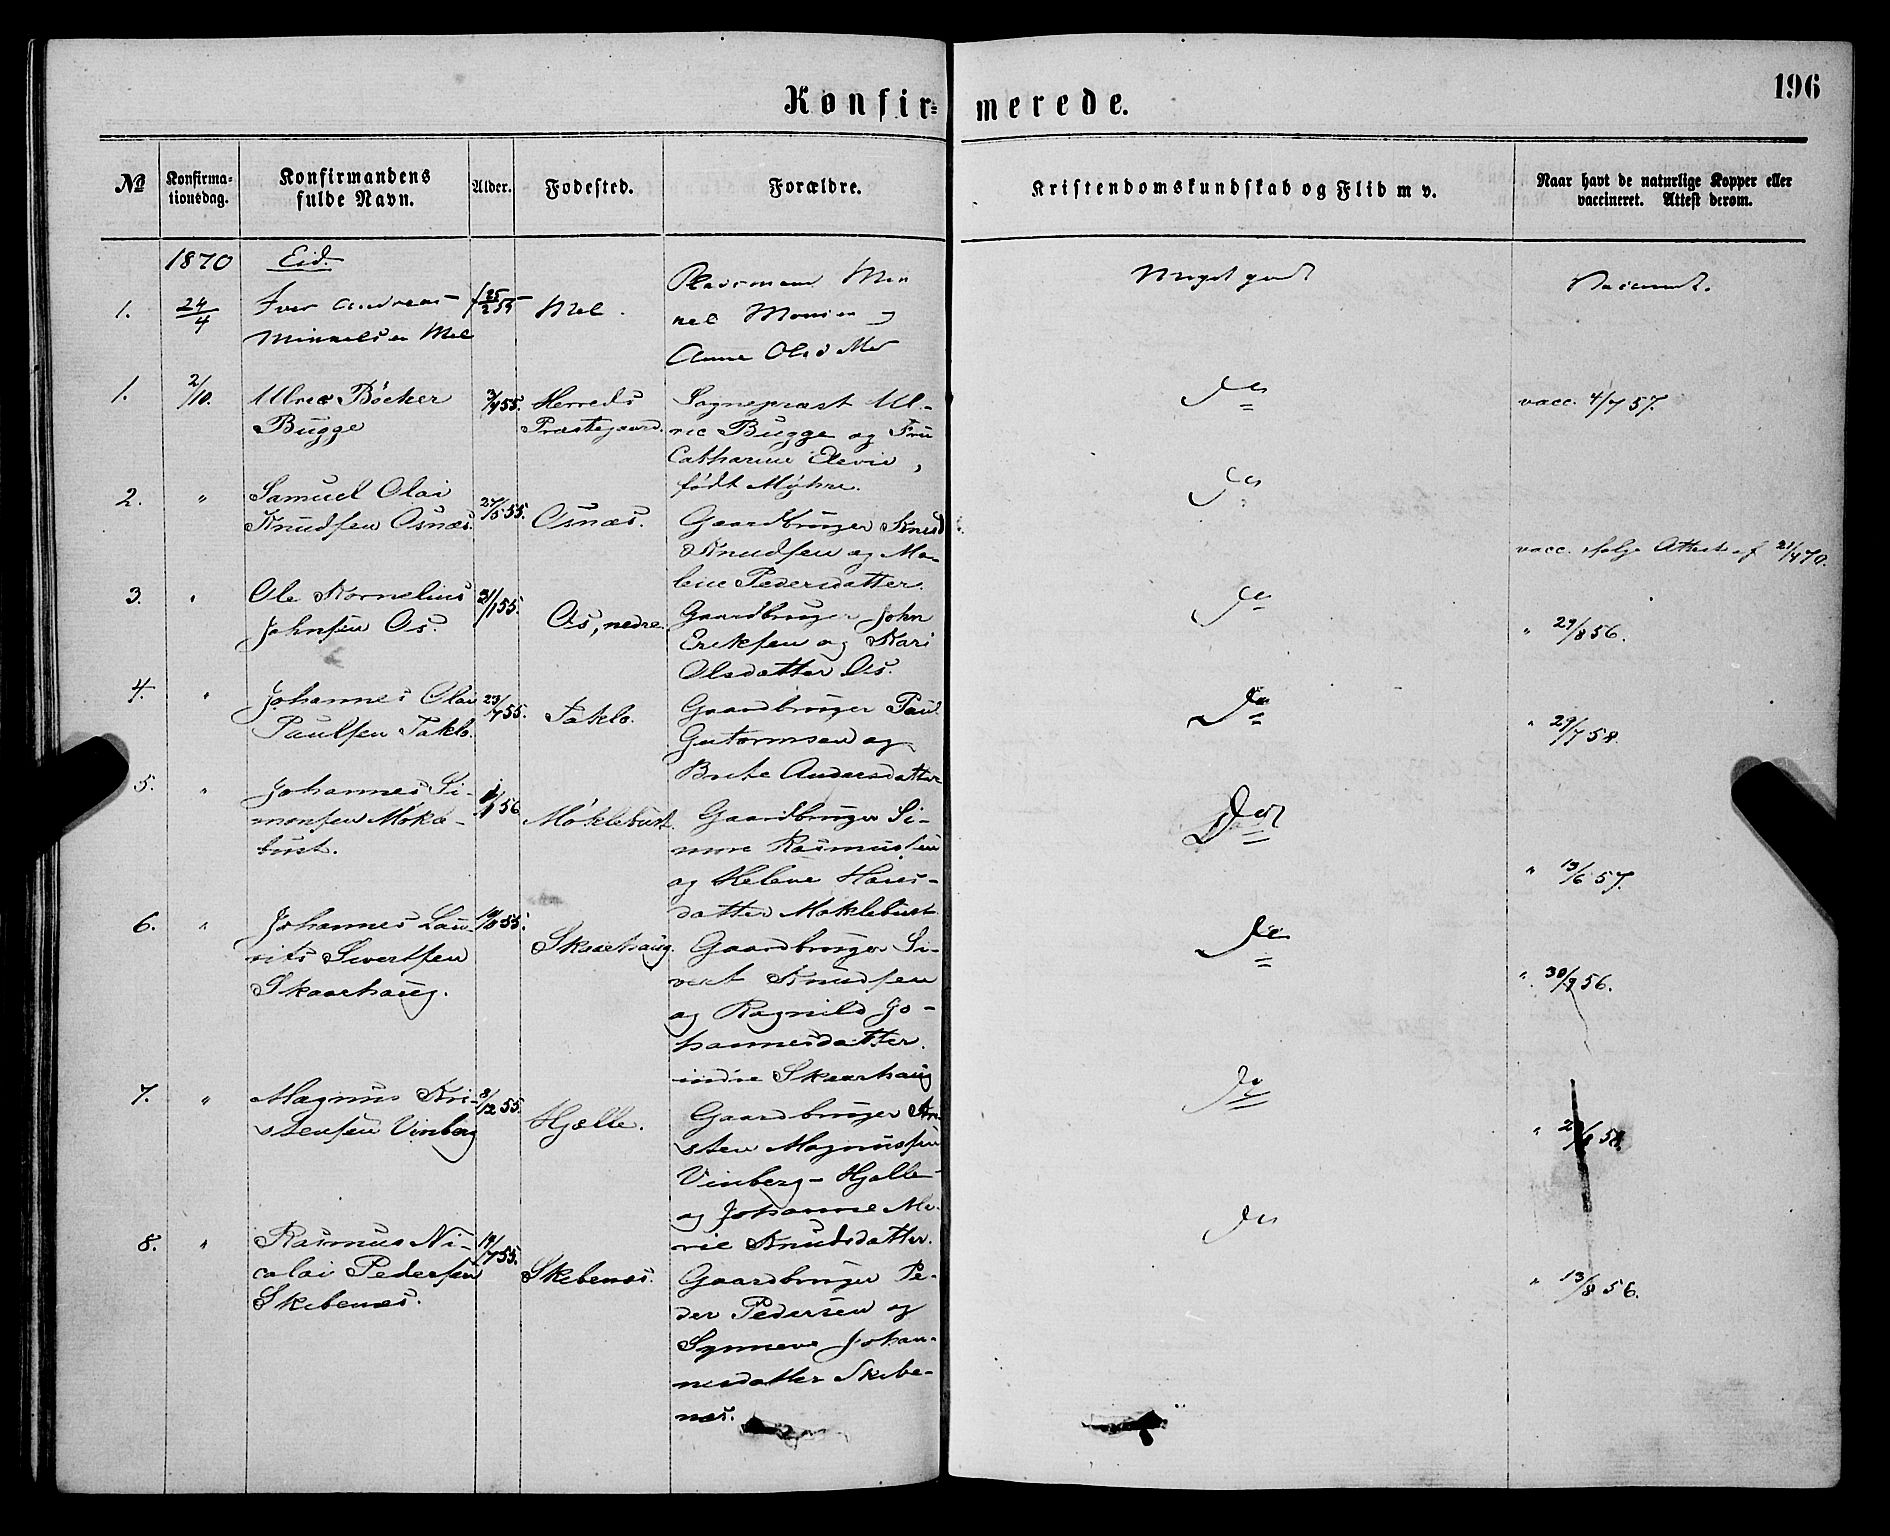 Konfir=
merede.
196
№
Konfirma-
tionsdag.
Konfirmandens
fulde Navn.
Alder.
Fødested.
Forældre.
Kristendomskundskab og Flid m v.
Naar havt de naturlige Kopper eller
vaccineret. Attest derom.
1870
Eid.
1.
24/4
Iver Andreas
Minkelsen Mel
25/2 55
Mel.
Pladsmand Min
kel Monsen
Anne Olsd Mel
Meget godt
1.
2/10.
Ulric Böcker
Bugge
55.
Herreds
Præstegaard.
Sognepræst Ul-
ric Bugge og Fru
Catharine
født Myhre.
Do
vacc. 4/7 57.
2.
"
Samuel Olai
Knudsen Osnæs.
27/5 55.
Osnæs.
Gaardbruger Knud
Knudsen og Ma-
lene Pedersdatter.
Do
vacc. ifølge Attest af 21/4 70.
3.
"
Ole Kornelius
Johnsen Os.
31/1 55.
Os, nedre.
Gaardbruger John
Eriksen og Kari
Olsdatter Os.
Do
" 29/8 56.
4.
"
Johannes Olai
Paulsen Taklo.
23/7 55.
Taklo.
Gaardbruger Paul
Gutormsen og
Brite Andersdatter
Do
" 29/7 58.
5.
"
Johannes Si-
monsen Mökle-
bust.
1/1 56
Möklebust.
Gaardbruger Si-
mon Rasmussen
og Helene Hans-
datter Möklebust
Do
" 13/6 57.
6.
"
Johannes Lau-
rits Sivertsen
Skaarhaug.
55.
Skaarhaug.
Gaardbruger Si-
vert Knudsen
og Ragnild Jo-
hannesdatter
indre Skaarhaug
Do
" 30/9 56.
7.
"
Magnus Kri-
stensen Vinberg
8/12 55.
Hjelle.
Gaardbruger Kri-
sten Magnussen
Vinberg - Hjelle
og Johanne Ma-
rie Knudsdatter.
Do
"
58.
8.
"
Rasmus Ni-
colai Pedersen
Skebenæs.
19/7 55.
Skebenæs.
Gaardbruger Pe-
der Pedersen og
Synneve Johan-
nesdatter Skebe-
næs.
Do
" 13/8 56.